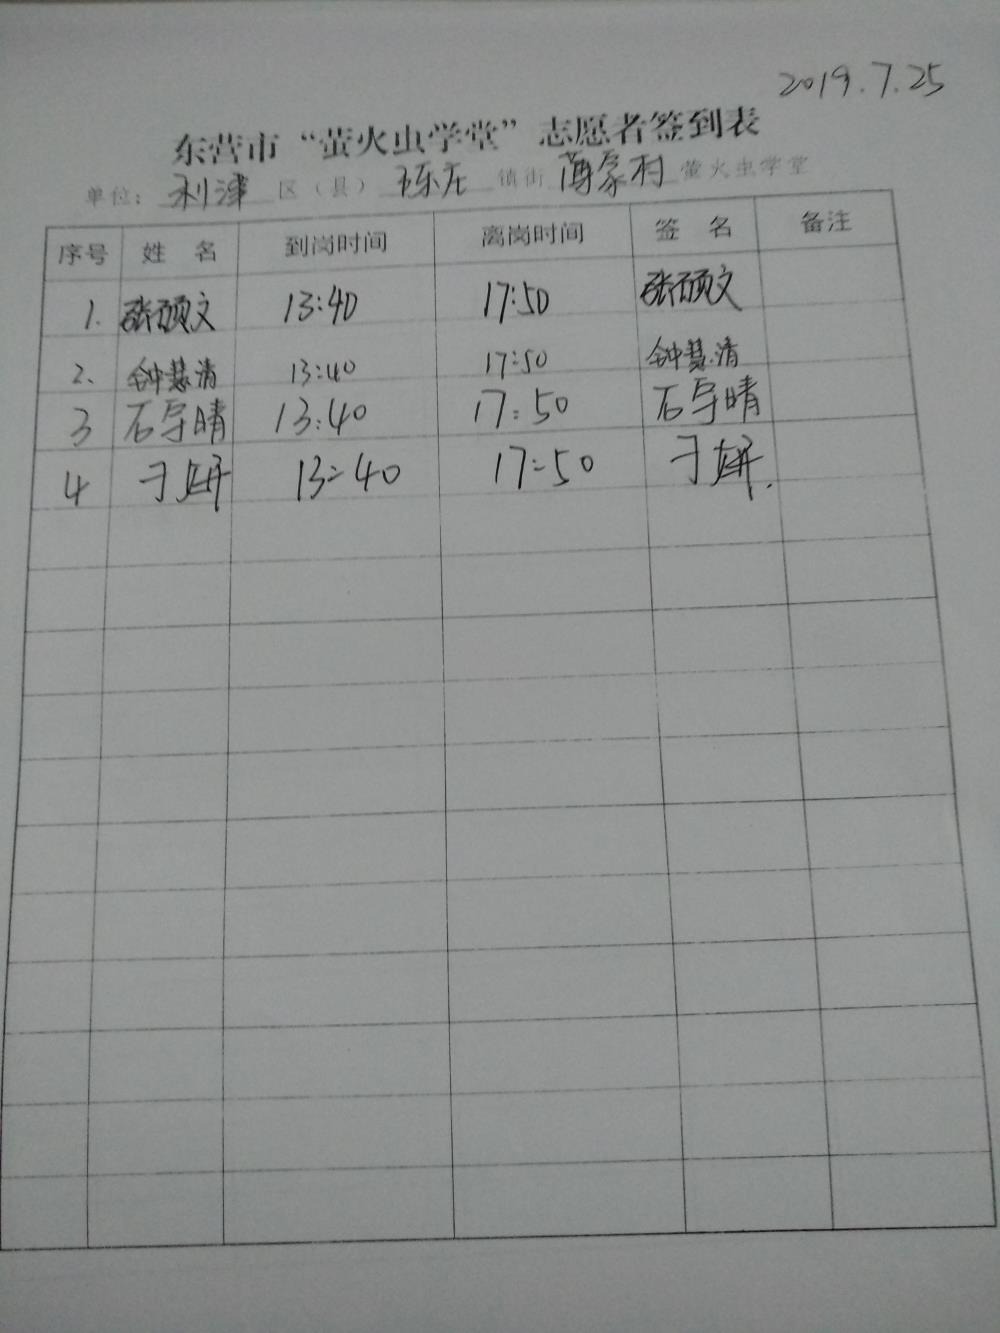 2019.7.25
东营市“萤火虫学堂”志愿者签到表
单位：利津 区（县） 陈庄 镇街 薄家村 萤火虫学堂
序号 姓 名 到岗时间 离岗时间 签 名 备注
1. 张硕文 13:40 17:50 张硕文
2、 钟慧清 13:40 17:50 钟慧清
3 石导晴 13:40 17:50 石导晴
4 于妍 13:40 17:50 于妍.